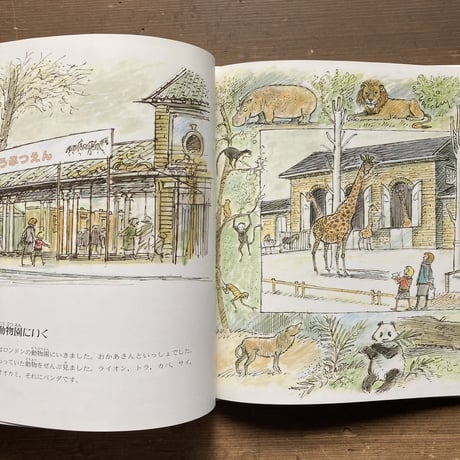 うぶつえん
動物園にいく
はロンドンの動物園にいきました。おかあさんといっしょでした。
っていた動物をぜんぶ見ました。ライオン、トラ、カバ、サイ、
オオカミ、それにパンダです。